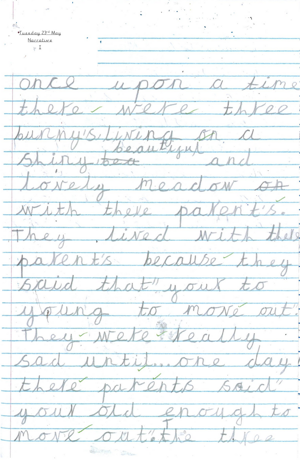 Tuesday 23rd May
Narrative
once upon a time
there were three
bunny's living on a
beautiful
shiny and
lovely meadow
with there parent's.
They lived with there
parent's because they
said that" your to
young to move out.
They were really
sad until... one day
there parents said"
your old enough to
move out". The three